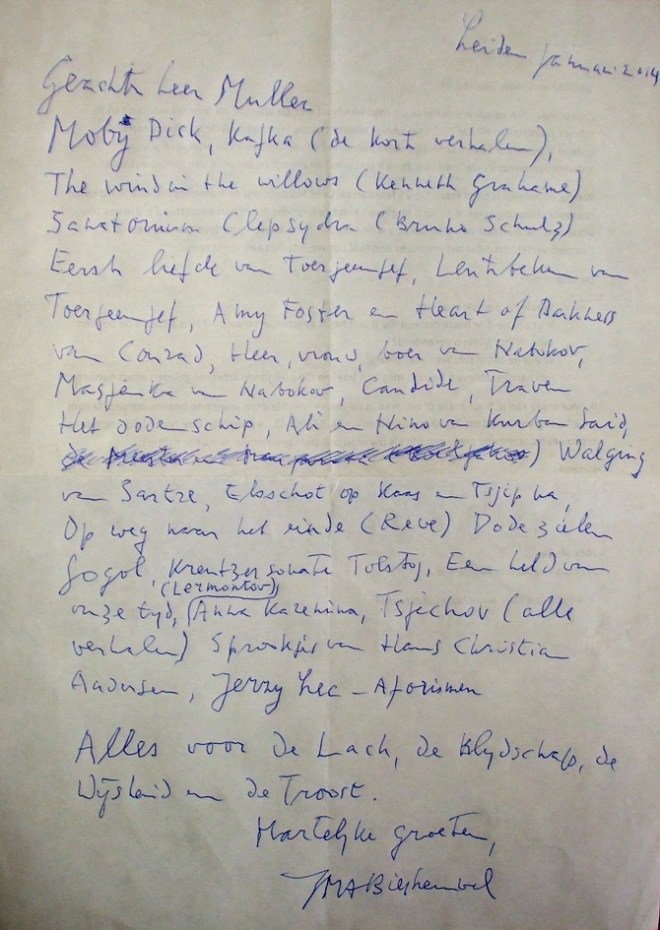 Leiden januari 2014
Geachte heer Muller
Moby Dick, Kafka (de korte verhalen),
The wind in the willows (Kenneth Grahame)
Sanatorium Clepsydra (Bruno Schulz)
Eerste liefde van Toergenjef, Lentebeken van
Toergenjef, Amy Foster en Heart of Darkness
van Conrad, Heer, vrouw, boer van Nabokov,
Masjenka van Nabokov, Candide, Traven
Het dodenschip, Ali en Nino van Kurban Said,
Walging
van Sartre, Elsschot op Kaas en Tsjip na,
Op weg naar het einde (Reve) Dode zielen
Gogol, Kreutzersonate Tolstoj, Een held van
onze tijd, (Lermontov), Anna Karenina, Tsjechov (alle
verhalen) Sprookjes van Hans Christian
Andersen, Jerzy Lec - Aforismen
Alles voor de Lach, de Blijdschap, de
Wijsheid en de Troost.
Hartelijke groeten,
JMA Biesheuvel